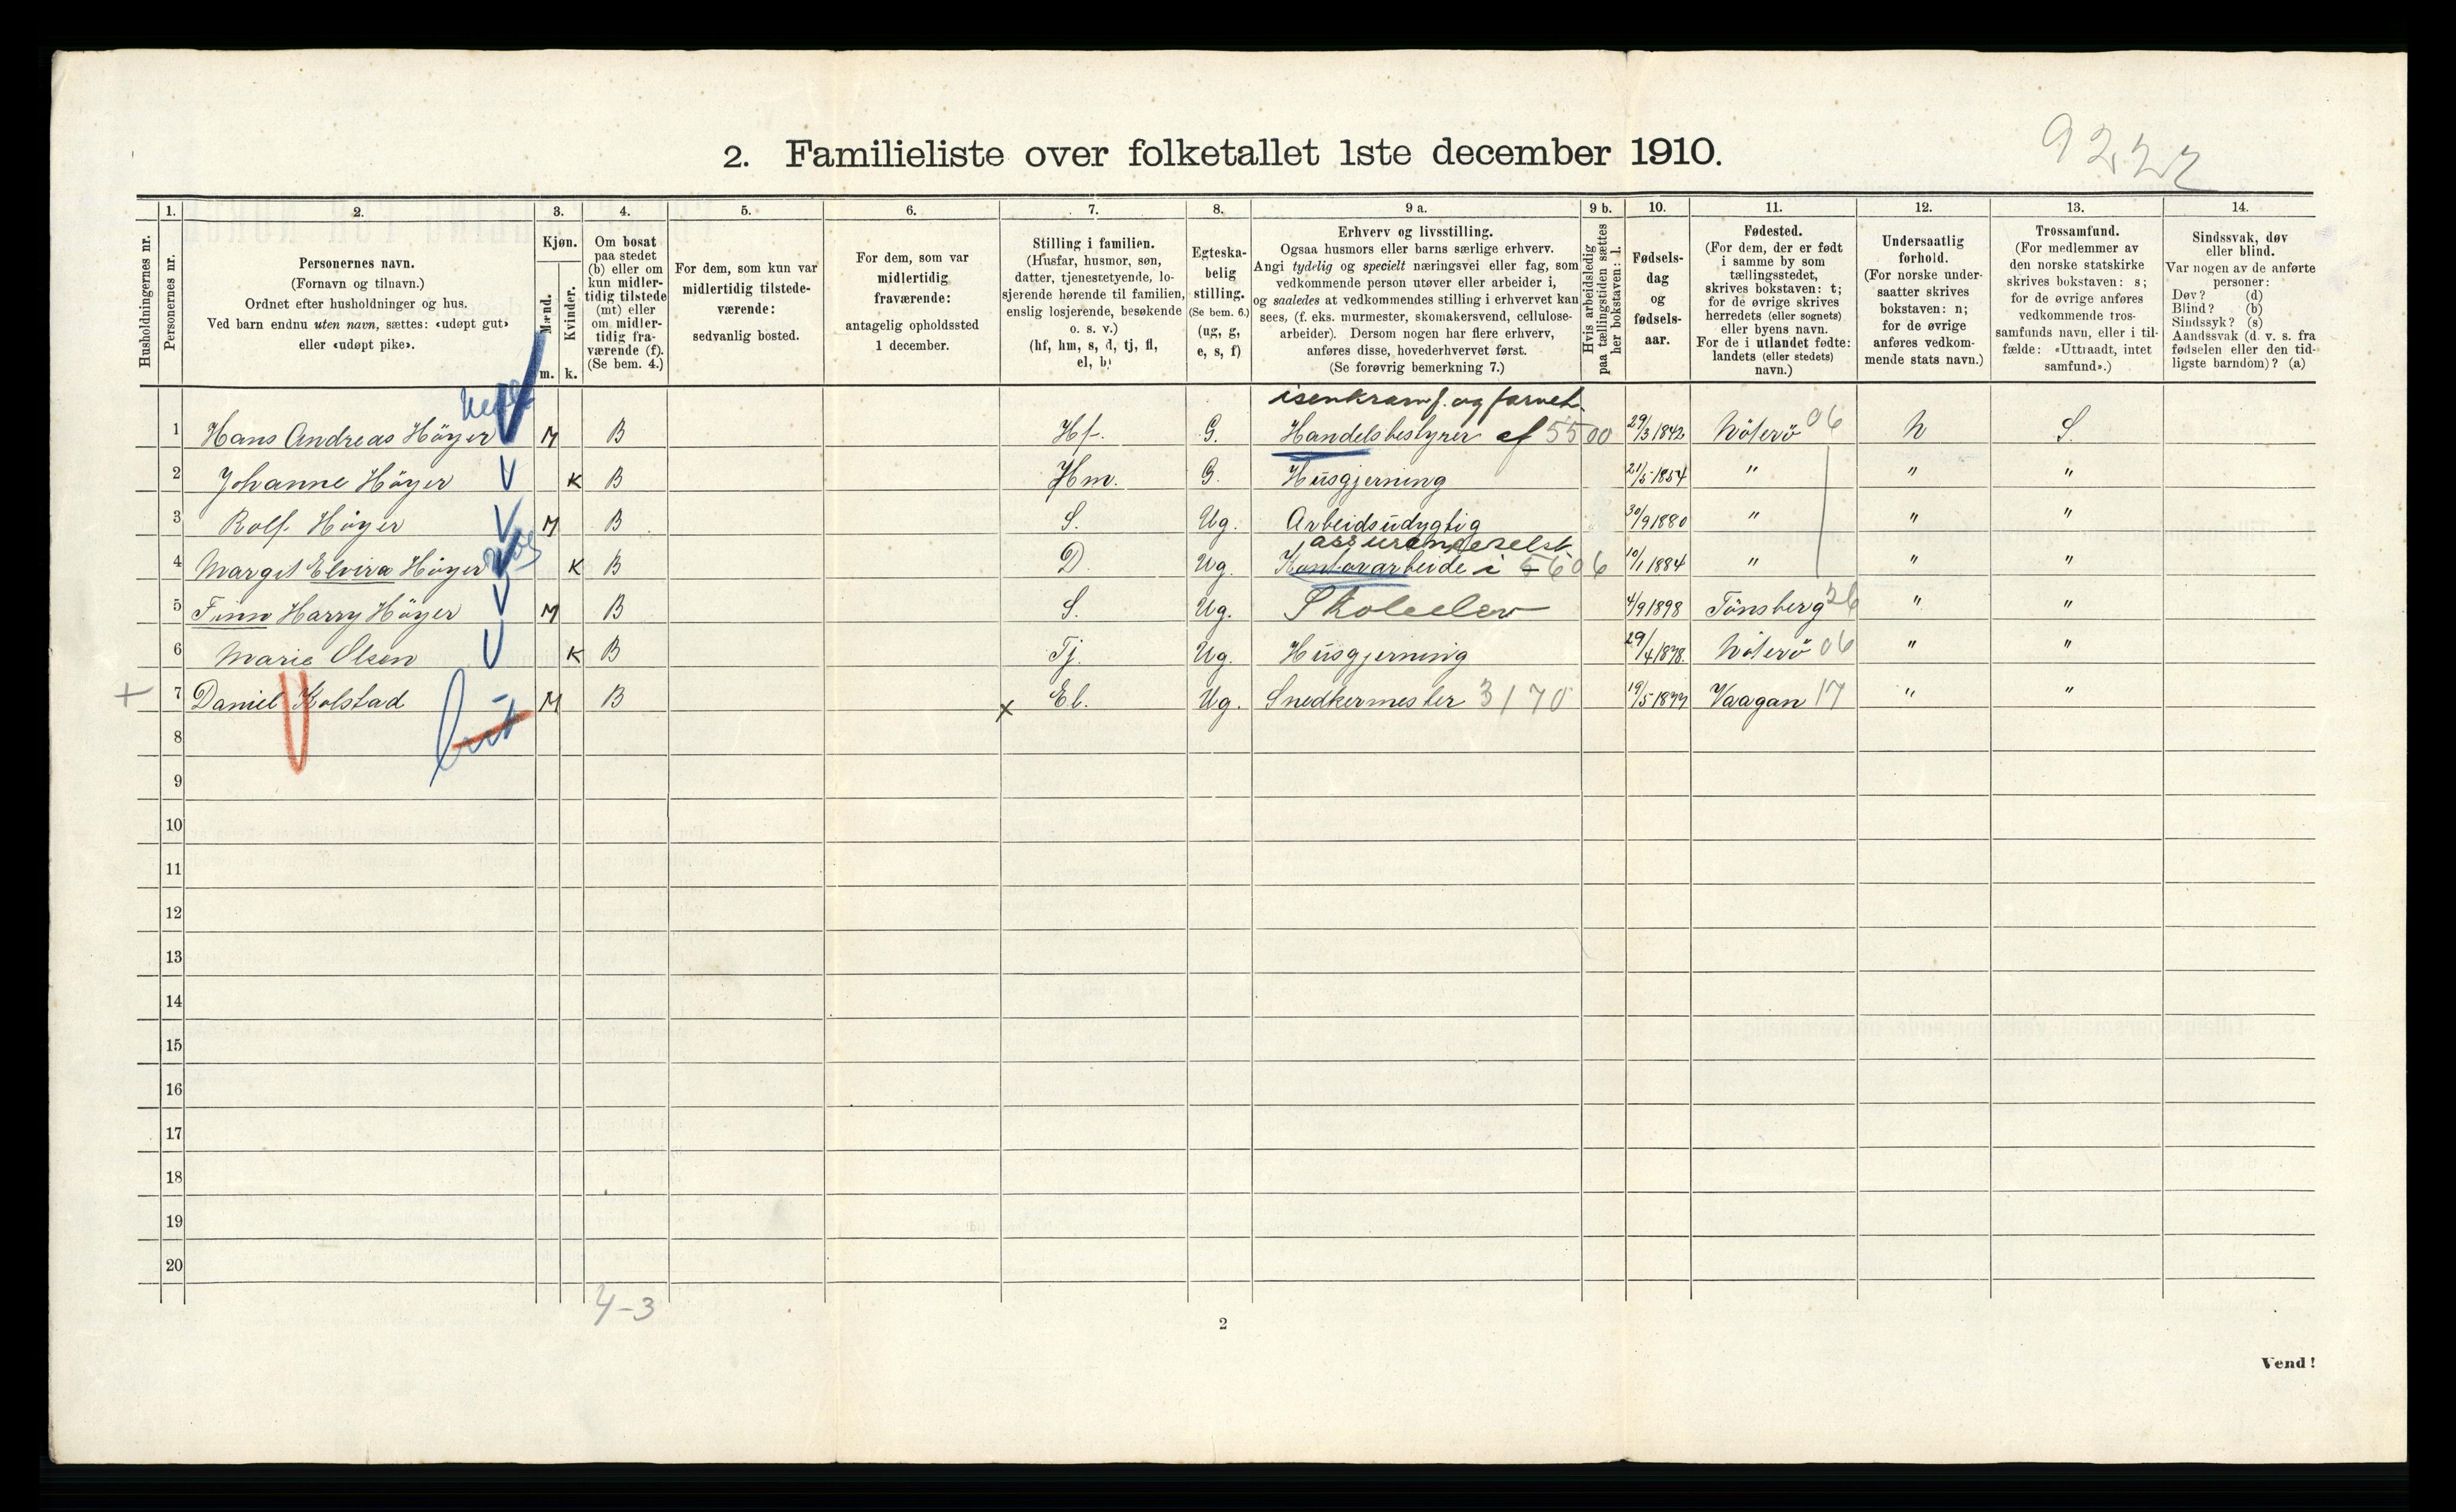 2. Familieliste over folketallet 1ste december 1910.
92,22
Husholdningernes nr.
1. Personernes nr.
2. Personernes navn.
(Fornavn og tilnavn.)
Ordnet efter husholdninger og hus.
Ved barn endnu uten navn, sættes: «udøpt gut»
eller «udøpt pike».
3. Kjøn.
Mænd. m.
Kvinder. k.
4. Om bosat
paa stedet
(b) eller om
kun midler-
tidig tilstede
(mt) eller
om midler-
tidig fra-
værende (f).
(Se bem. 4.)
5. For dem, som kun var
midlertidig tilstede-
værende:
sedvanlig bosted.
6. For dem, som var
midlertidig
fraværende:
antagelig opholdssted
1 december.
7. Stilling i familien.
(Husfar, husmor, søn,
datter, tjenestetyende, lo-
sjerende hørende til familien,
enslig losjerende, besøkende
o. s. v.)
(hf, hm, s, d, tj, fl,
el, b)
8. Egteska-
belig
stilling.
(Se bem. 6.)
(ug, g,
e, s, f)
9 a. Erhverv og livsstilling.
Ogsaa husmors eller barns særlige erhverv.
Angi tydelig og specielt næringsvei eller fag, som
vedkommende person utøver eller arbeider i,
og saaledes at vedkommendes stilling i erhvervet kan
sees, (f. eks. murmester, skomakersvend, cellulose-
arbeider). Dersom nogen har flere erhverv,
anføres disse, hovederhvervet først.
(Se forøvrig bemerkning 7.)
9 b. Hvis arbeidsledig
paa tællingstiden sættes
her bokstaven: l.
10. Fødsels-
dag
og
fødsels-
aar.
11. Fødested.
(For dem, der er født
i samme by som
tællingsstedet,
skrives bokstaven: t;
for de øvrige skrives
herredets (eller sognets)
eller byens navn.
For de i utlandet fødte:
landets (eller stedets)
navn.)
12. Undersaatlig
forhold.
(For norske under-
saatter skrives
bokstaven: n;
for de øvrige
anføres vedkom-
mende stats navn.)
13. Trossamfund.
(For medlemmer av
den norske statskirke
skrives bokstaven: s;
for de øvrige anføres
vedkommende tros-
samfunds navn, eller i til-
fælde: «Uttraadt, intet
samfund».)
14. Sindssvak, døv
eller blind.
Var nogen av de anførte
personer:
Døv? (d)
Blind? (b)
Sindssyk? (s)
Aandssvak (d. v. s. fra
fødselen eller den tid-
ligste barndom)? (a)
isenkramf. og farveh.
1 Hans Andreas Höyer M B Hf. G. Handelsbestyrer af 5500 29/3 1842 Nöterö 06 n S.
2 Johanne Höyer K B Hm. G. Husgjerning 21/5 1854 " " "
3 Rolf Höyer M B S. Ug. Arbeidsudygtig 30/9 1880 " " "
4 Margit Elvira Höyer K B D. Ug. Kontorarbeide i 5606 10/1 1884 " " "
5 Finn Harry Höyer M B S. Ug. Skoleelev 4/9 1898 Tönsberg 26 " "
6 Marie Olsen K B Tj. Ug. Husgjerning 29/4 1878. Nöterö 06 " "
+ 7 Daniel Kolstad M B x El. Ug. Snedkermester 3170 19/5 1877 Vaagan 17 " "
8
9
10
11
12
13
14
15
16
17
18
19
20
4-3
2
Vend!